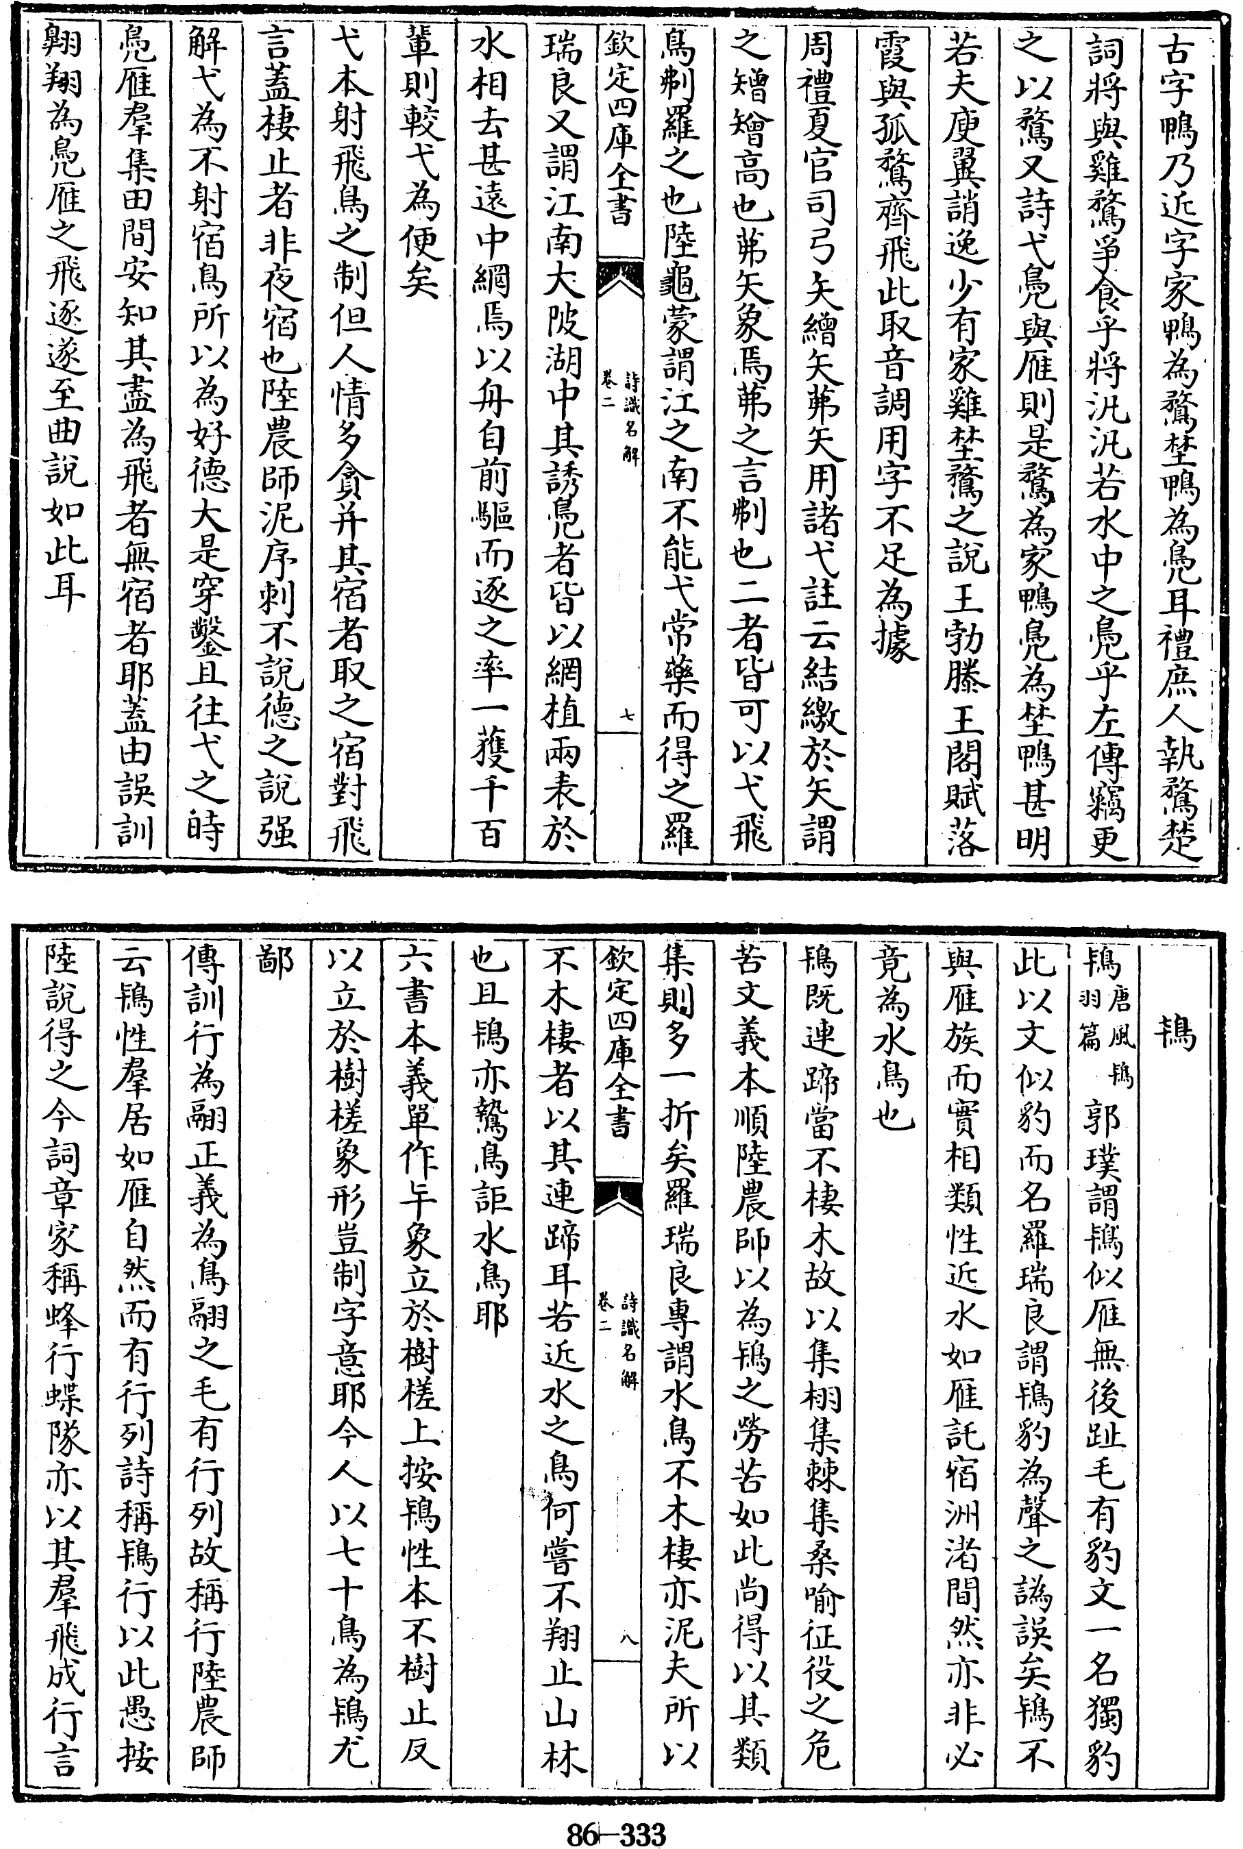 古字鴨乃近字家鴨為鶩埜鴨為鳧耳禮庶人執鶩楚
詞將與雞鶩爭食乎將汎汎若水中之鳧乎左傳竊更
之以鶩又詩弋鳧與雁則是鶩為家鴨鳧為埜鴨甚明
若夫庾翼誚逸少有家雞埜鶩之說王勃滕王閣賦落
霞與孤鶩齊飛此取音調用字不足為據
周禮夏官司弓矢矰矢茀矢用諸弋註云結繳於矢謂
之矰矰高也茀矢象焉茀之言刜也二者皆可以弋飛
鳥刜羅之也陸龜蒙謂江之南不能弋常藥而得之羅
欽定四庫全書
詩識名解
卷二
七
瑞良又謂江南大陂湖中其誘鳧者皆以網植兩表於
水相去甚遠中綱焉以舟自前驅而逐之率一獲千百
輩則較弋為便矣
弋本射飛鳥之制但人情多貪并其宿者取之宿對飛
言蓋棲止者非夜宿也陸農師泥序刺不說德之說强
解弋為不射宿鳥所以為好德大是穿鑿且往弋之時
鳧雁羣集田間安知其盡為飛者無宿者耶蓋由誤訓
翺翔為鳧雁之飛逐遂至曲說如此耳
鴇
鴇唐風鴇羽篇 郭璞謂鴇似雁無後趾毛有豹文一名獨豹
此以文似豹而名羅瑞良謂鴇豹為聲之譌誤矣鴇不
與雁族而實相類性近水如雁託宿洲渚間然亦非必
竟為水鳥也
鴇既連蹄當不棲木故以集栩集棘集桑喻征役之危
苦文義本順陸農師以為鴇之勞苦如此尚得以其類
集則多一折矣羅瑞良專謂水鳥不木棲亦泥夫所以
欽定四庫全書
詩識名解
卷二
八
不木棲者以其連蹄耳若近水之鳥何嘗不翔止山林
也且鴇亦鷙鳥詎水鳥耶
六書本義單作𠤏象立於樹槎上按鴇性本不樹止反
以立於樹槎象形豈制字意耶今人以七十鳥為鴇尤
鄙
傳訓行為翮正義為鳥翮之毛有行列故稱行陸農師
云鴇性羣居如雁自然而有行列詩稱鴇行以此愚按
陸說得之今詞章家稱蜂行蝶隊亦以其羣飛成行言
86-333